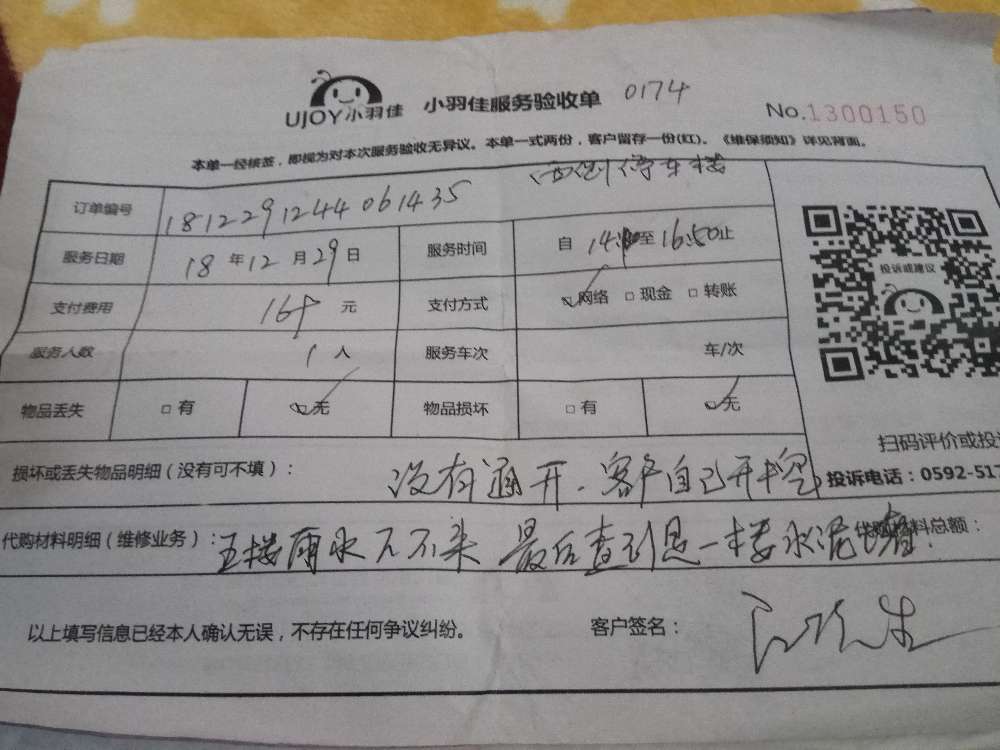 UJOY小羽佳 小羽佳服务验收单 0174
No.1300150
本单一经核签，即视为对本次服务验收无异议。本单一式两份，客户留存一份(红)。《维保须知》详见背面。
停车楼
订单编号 181229124406 1435
服务日期 18 年 12 月 29 日 服务时间 自 14 至 16:50 止
支付费用 元 支付方式 网络 □ 现金 □ 转账
服务人数 1 人 服务车次 车/次
物品丢失 □ 有 无 物品损坏 □ 有 无
投诉或建议
扫码评价或投
投诉电话：0592-517
损坏或丢失物品明细（没有可不填）： 没有通开、客户自己开
代购材料明细（维修业务）： 五楼雨水下不来 最后查到是一楼水泥 料总额：
以上填写信息已经本人确认无误，不存在任何争议纠纷。 客户签名：